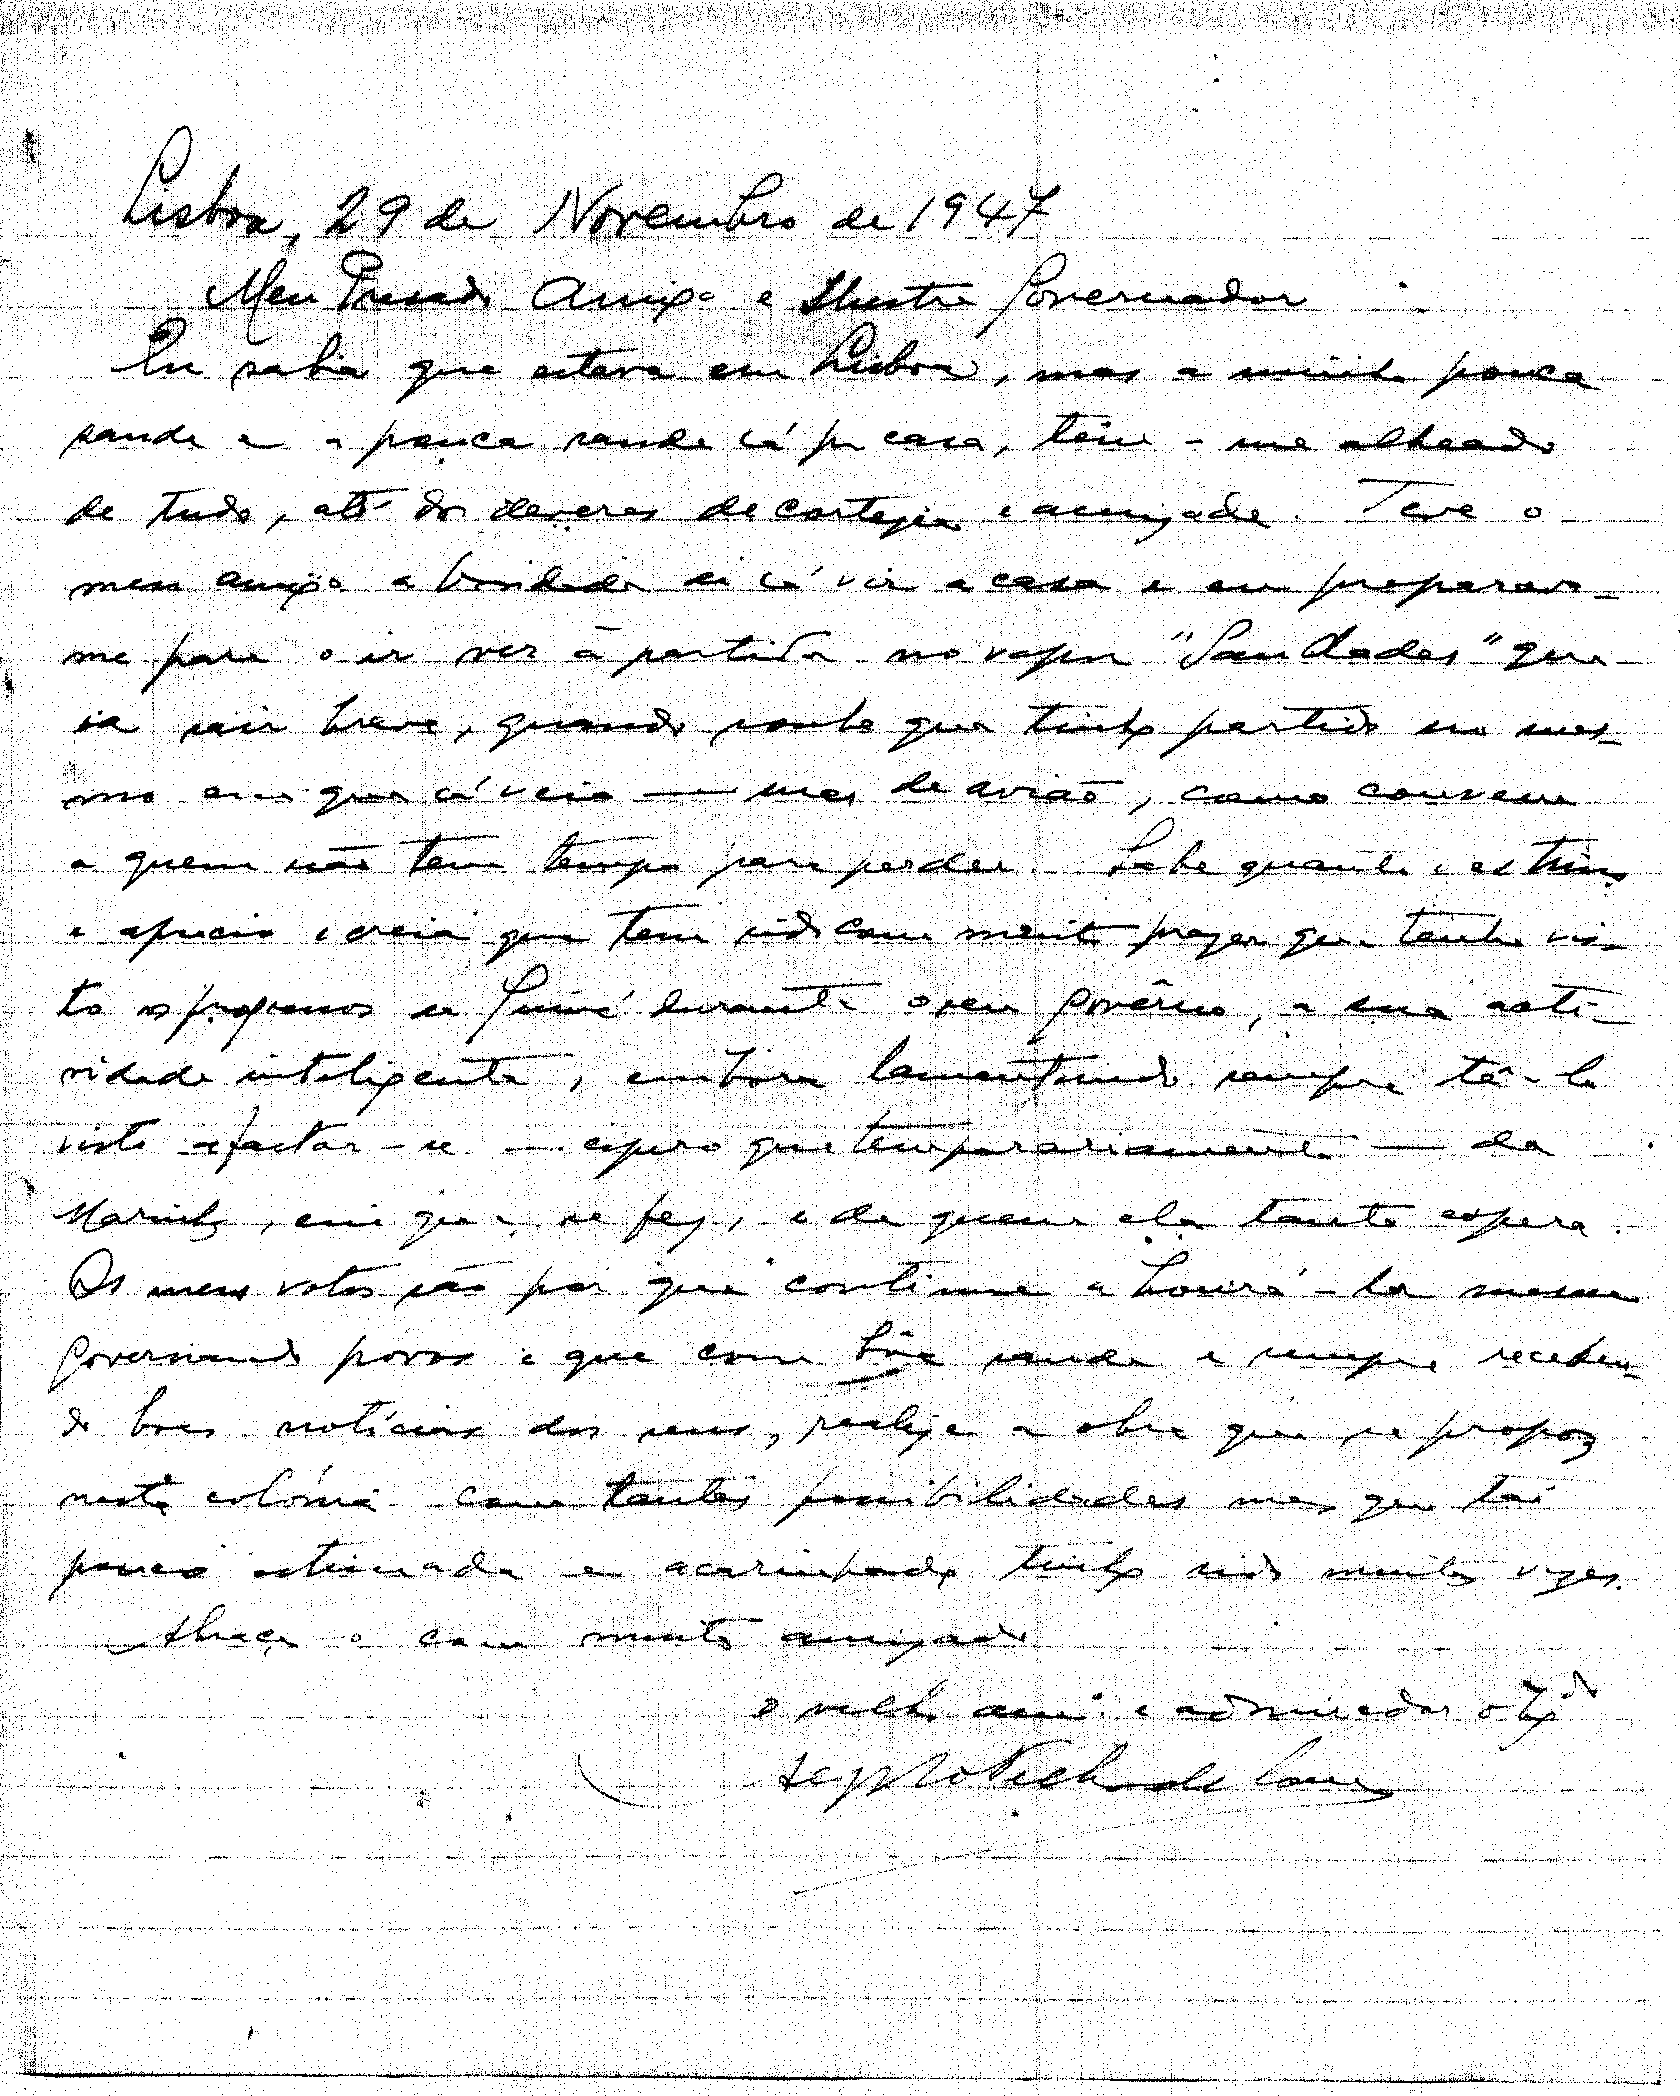 Lisboa, 29 de Novembro de 1947
Meu Presado Amigo e Ilustre Governador
Eu sabia que estava em Lisboa, mas a minha pouca
saude e a pouca saude cá por casa, têm-me alheado
de tudo, até dos deveres de cortezia e amizade. Teve o
meu amigo a bondade de cá vir a casa e eu preparava-
me para o ir ver à partida no vapor "San Dades" que
ia sair breve, quando soube que tinha partido no mes-
mo em que cá veio — mas de avião, como convem
a quem não tem tempo para perder. Sabe quanto o estimo
e aprecio e creia que tem sido com muito prazer que tenho vis-
to os progressos da Guiné durante o seu Govêrno, a sua acti-
vidade inteligente, embora lamentando sempre tê-lo
visto afastar-se — espero que temporariamente — da
Marinha, em que se fez, e de quem ela tanto espera.
Os meus votos são por que continue a honrá-la mesmo
Governando povos e que com bôa saude e sempre receben-
do boas notícias dos seus, realize a obra que se propoz
nesta colónia com tantas possibilidades mas que tão
pouco estimada e acarinhada tinha sido muitas vezes.
Abraça-o com muita amizade
o velho am.º e admirador obg.do